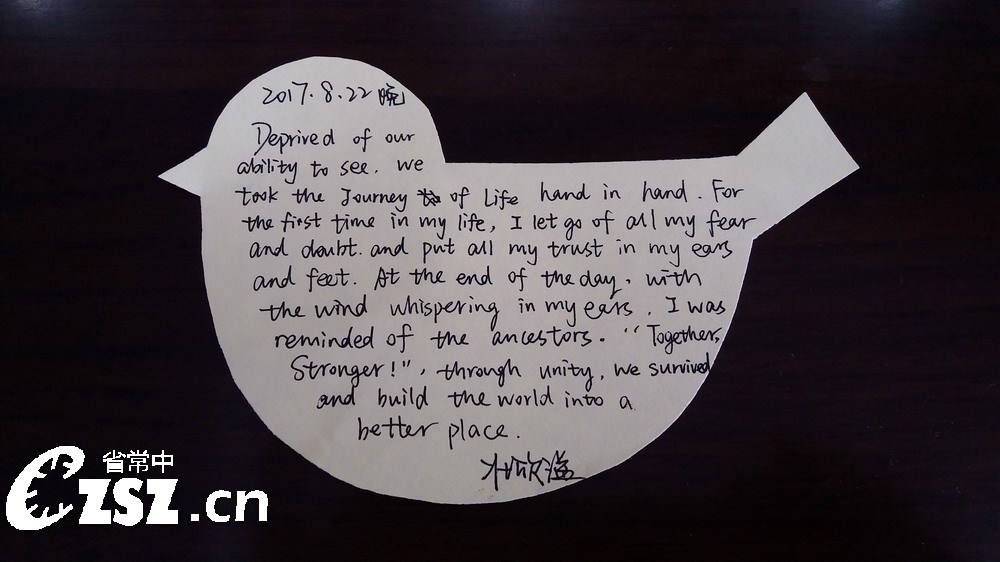 2017.8.22 晚
Deprived of our
ability to see. we
took the Journey of Life hand in hand. For
the first time in my life, I let go of all my fear
and doubt. and put all my trust in my ears
and feet. At the end of the day, with
the wind whispering in my ears, I was
reminded of the ancestors. "Together,
Stronger!", through unity, we survived
and build the world into a
better place.
省常中
CZSZ.cn